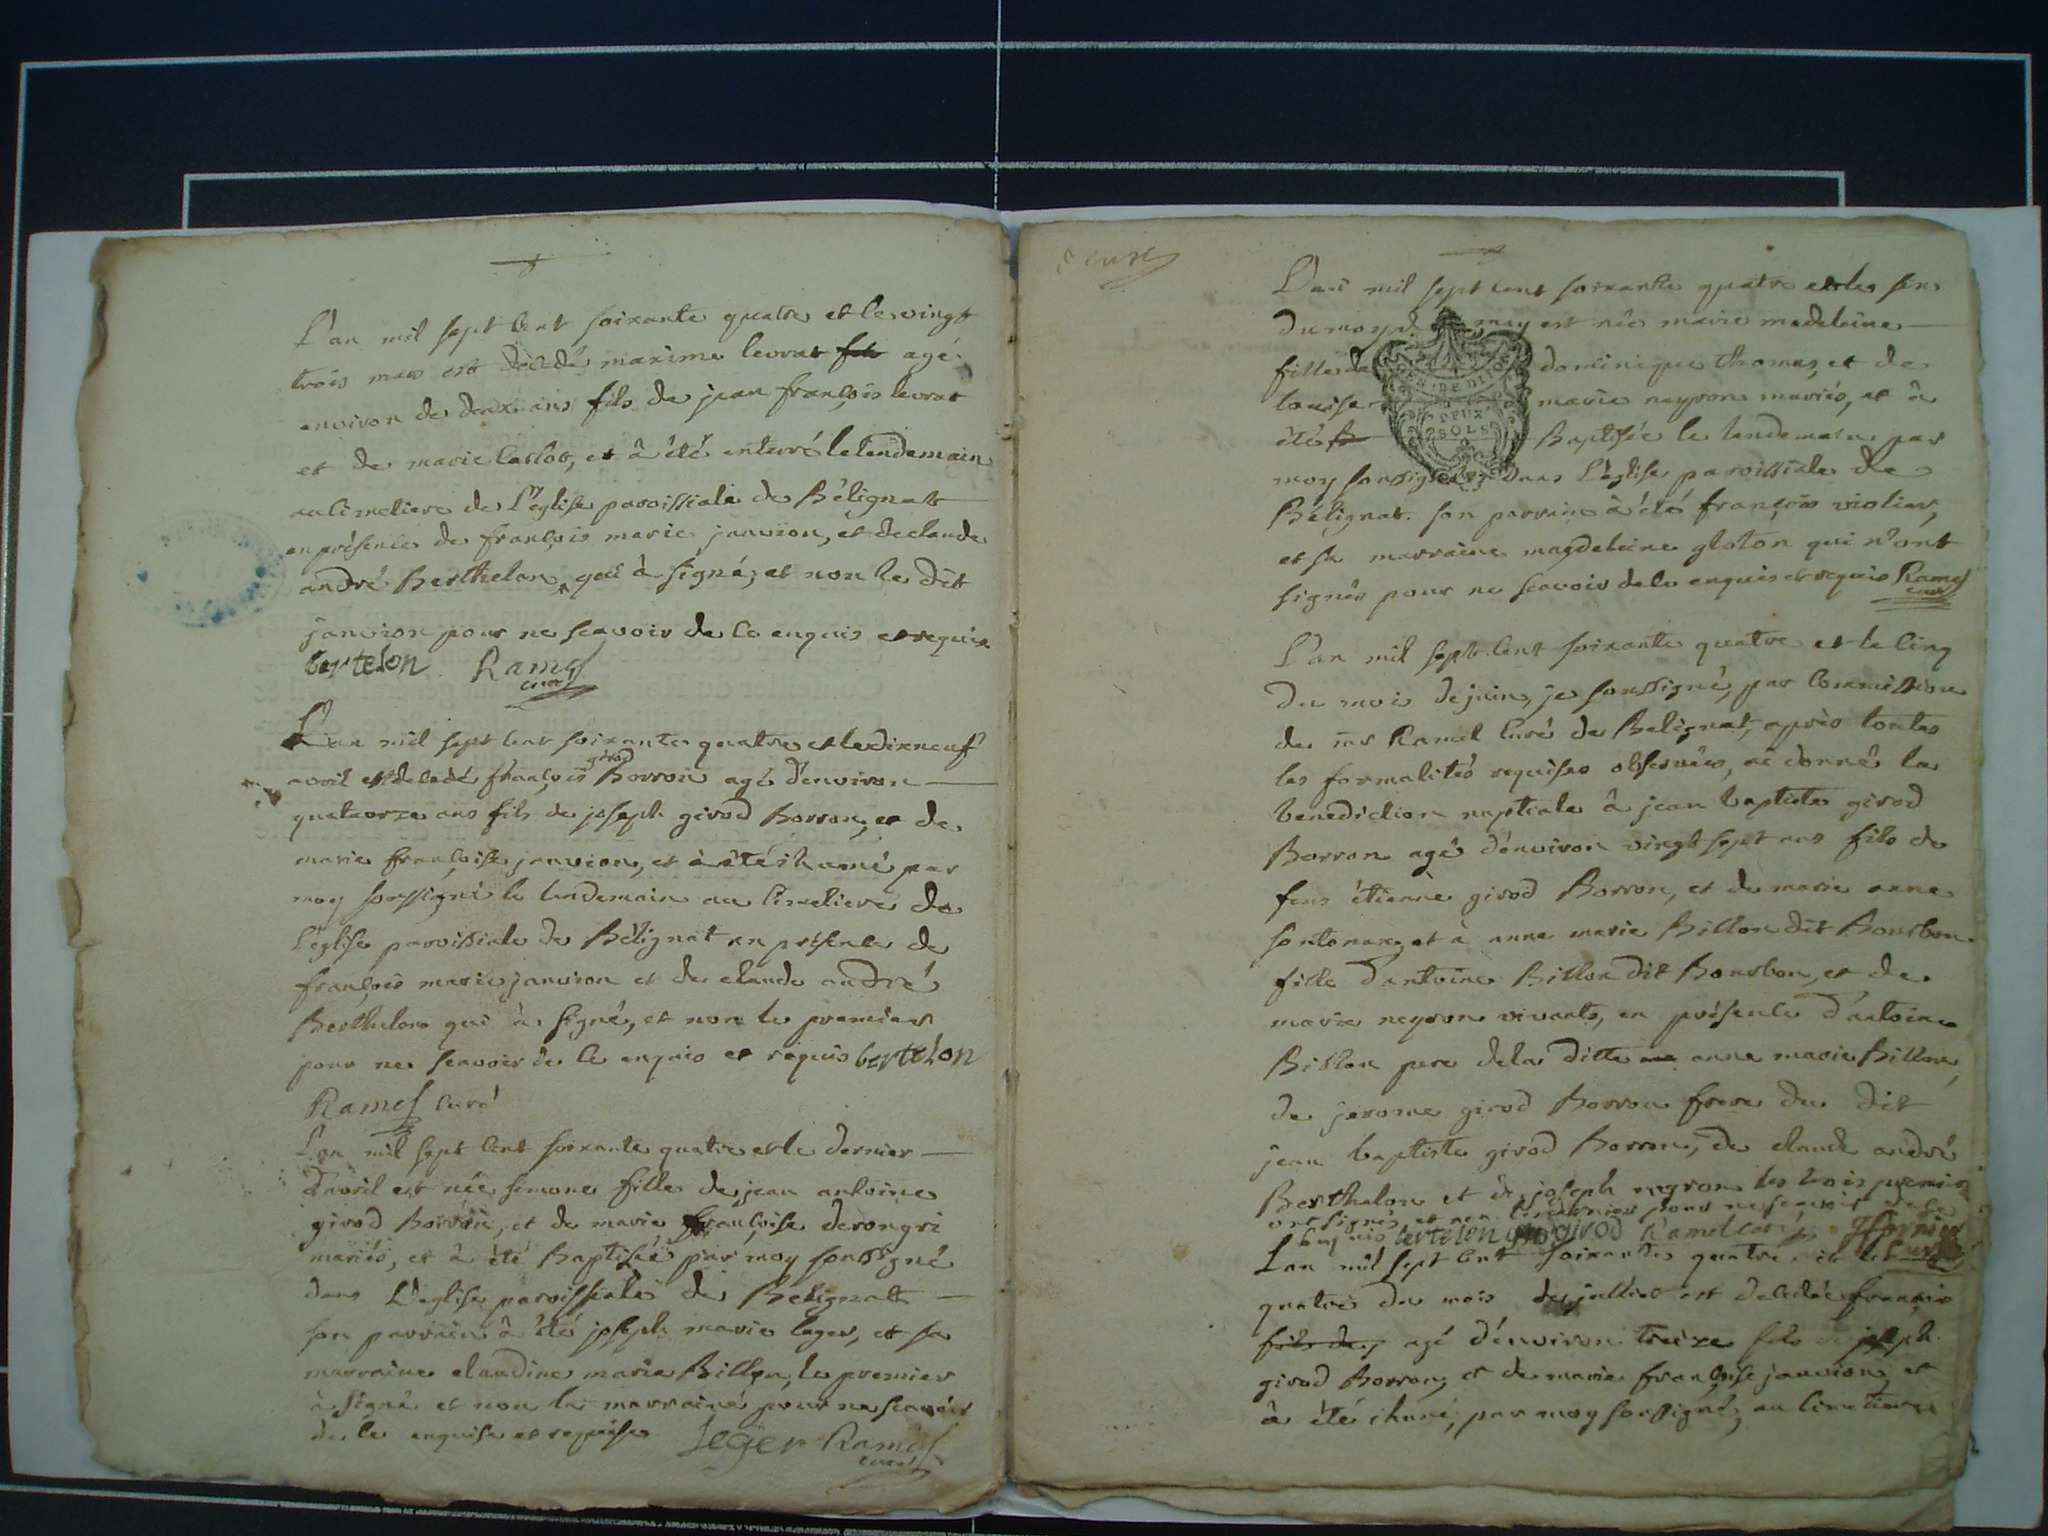 L'an mil sept cent soixante quatre et le vingt
trois mars est décédé maxime levrat fils agé
environ de deux ans fils de jean françois levrat
et de marie carlot, et à été enterré le lendemain
au cimetiere de l'église paroissiale de Bélignat
en présence de françois marie janvion, et de claude
andré Berthelon, qui à signé, et non le dit
janvion pour ne scavoir de ce enquis et requis
bertelon Ramel
curé
L'an mil sept cent soixante quatre et le dixneuf
avril est decedé françois girod Borron agé d'environ
quatorze ans fils de joseph girod Borron, et de
marie françoise janvion, et à été ihumé par
moy soussigné le lendemain au cimetiere de
l'église paroissiale de Bélignat en présence de
françois marie janvion et de claude andré
Berthelon qui à signé, et non le premier
pour ne scavoir de ce enquis et requis bertelon
Ramel curé
L'an mil sept cent soixante quatre et le dernier
d'avril est née simone fille de jean antoine
girod Borron, et de marie françoise derongri
mariés, et à été Baptisée par moy soussigné
dans l'eglise paroissiale de Belignat
son parrain à été joseph marie leger, et sa
marraine claudine marie Billon, le premier
à signé et non la marraine pour ne scavoir
de ce enquise et requise Leger Ramel
curé
L'an mil sept cent soixante quatre et le six
du moys de may est née marie madeleine
fille de dominique thomas, et de
louise marie neyron mariés, et à
été B Baptisée le lendemain par
moy soussigné dans l'église paroissiale de
Bélignat. son parrain à été françois violier,
et sa marraine magdeleine gloton qui n'ont
signés pour ne scavoir de ce enquis et requis Ramel
curé
L'an mil sept cent soixante quatre et le cinq
du mois de juin, je soussigné, par commission
de mr Ramel curé de Belignat, après toutes
les formalités requises observées, ai donné la
benediction nuptiale à jean baptiste girod
Borron agé d'environ vingt sept ans fils de
feus étienne girod Borron, et de marie anne
sontonax, et à anne marie Billon dit Bourbon
fille d'antoine Billon dit Bourbon, et de
marie neyron vivants, en présence d'antoine
Billon pere de la ditte anne marie Billon,
de jerome girod Borron frere du dit
jean baptiste girod Borron, de claude andré
Berthelon et de joseph neyron les trois premiers
ont signés, et non le dernier pour ne scavoir de ce
enquis bertelon girod Ramel curé
L'an mil sept cent soixante quatre et le
quatre du mois de juillet est decedé françois
fils de agé d'environ treize fils de joseph
girod Borron, et de marie françoise janvion, et
à été ihumé, par moy soussigné, au cimetiere